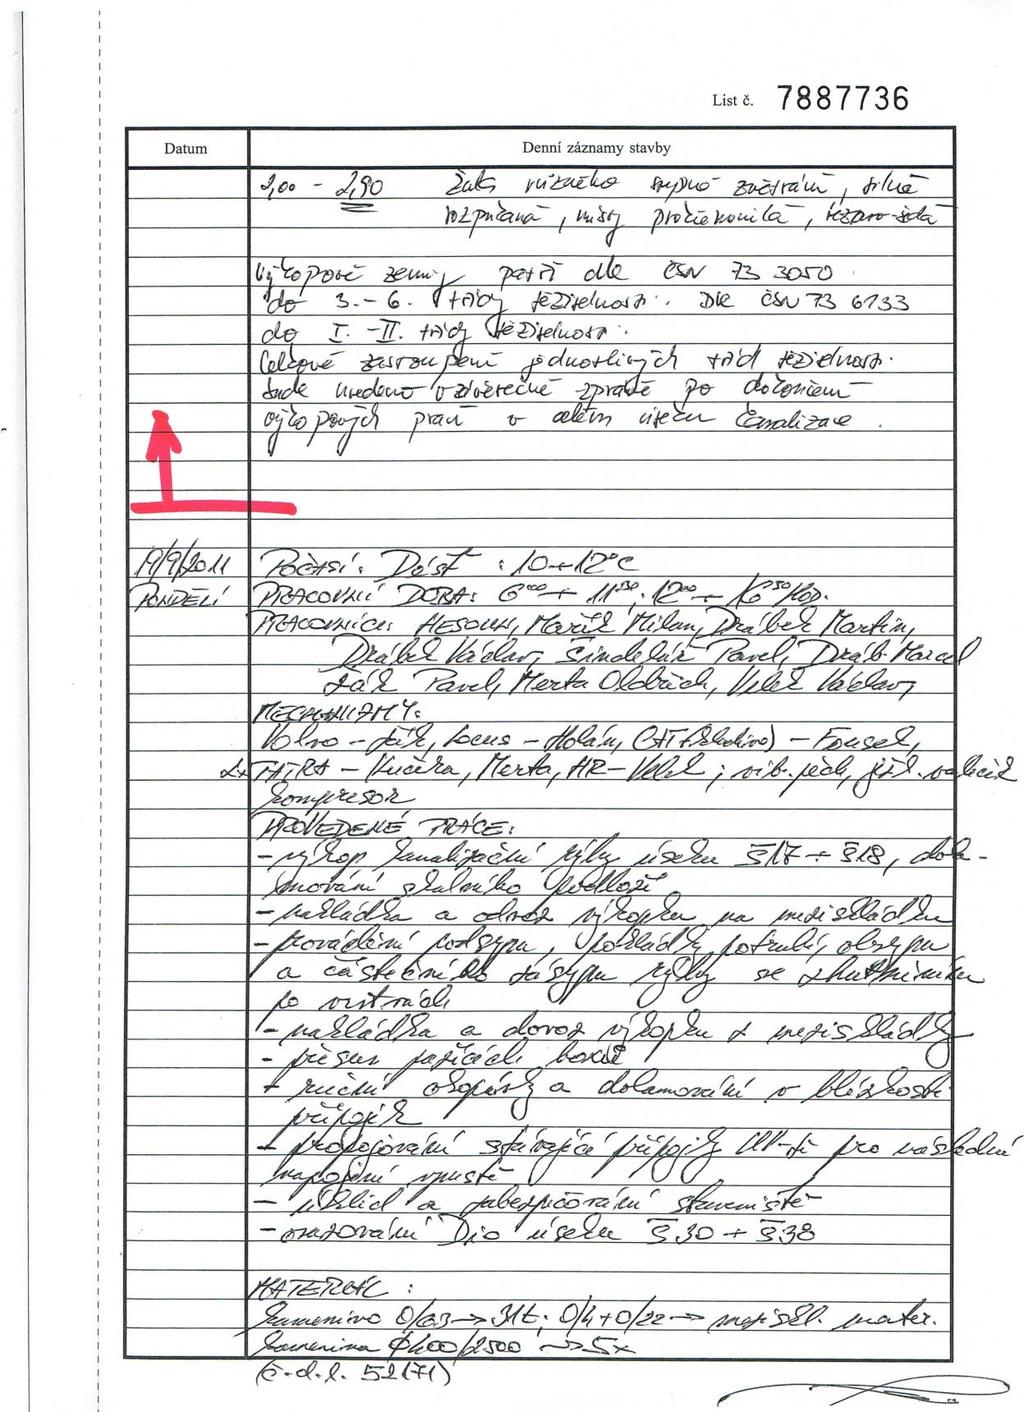 List č. 7887736
Datum Denní záznamy stavby
2,00 - 2,90 žula různého stupně zvětrání, silně
rozpukaná, místy , rezavo-šedá
Výkopové zeminy patří dle ČSN 73 3050
do 3.-6. třídy těžitelnosti. Dle ČSN 73 6133
do I.-II. třídy těžitelnosti.
Celkové zastoupení jednotlivých tříd těžitelnosti
bude uvedeno v závěrečné zprávě po dokončení
výkopových prací v celém úseku kanalizace.
19/9/2011 Počasí: Déšť: 10÷12°C
PONDĚLÍ PRACOVNÍ DOBA: 6°° ÷ 11³⁰, 12°° ÷ 16³⁰ hod.
PRACOVNÍCI: Mařík Milan, Drábek Martin,
Drábek Václav, Šindelář Pavel, Dráb Marcel
Žák Pavel, Merta Oldřich, Velek Václav,
MECHANIZMY:
Volvo - Žák, Locus - Holán, CAT - Fousek,
2x TATRA - Kučera, Merta, - Velek; vib. pěch, válec
kompresor
PROVEDENÉ PRÁCE:
- výkop kanalizační rýhy úseku Š17 ÷ Š18, dola-
mování skalního podloží
- nakládka a odvoz výkopku na meziskládku
- provádění podsypu, pokládky potrubí, obsypu
a částečného zásypu rýhy se zhutněním
po vrstvách
- nakládka a dovoz výkopku z meziskládky
- přesun pažících boxů
+ ruční okopávky a dolamování v blízkosti
přípojek
+ propojování stávající přípojky UV- pro následné
napojení vpustě
- úklid a zabezpečování staveniště
- osazování Dio úseku Š30 ÷ Š38
MATERIÁL:
Kamenivo 0/63 → 31t; 0/4 + 0/22 → meziskl. mater.
Kamenina Ø400/2500 → 5x
(č.d.l. 52171)